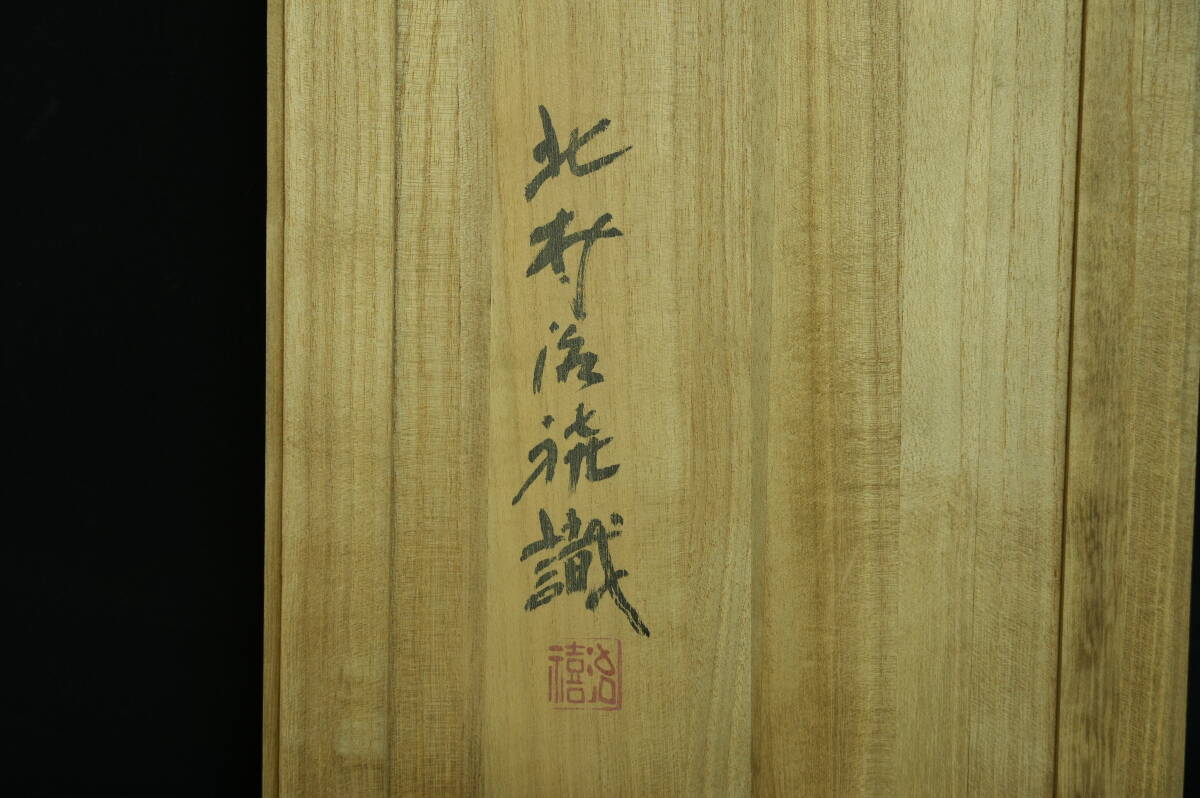 北村治禧識
治禧